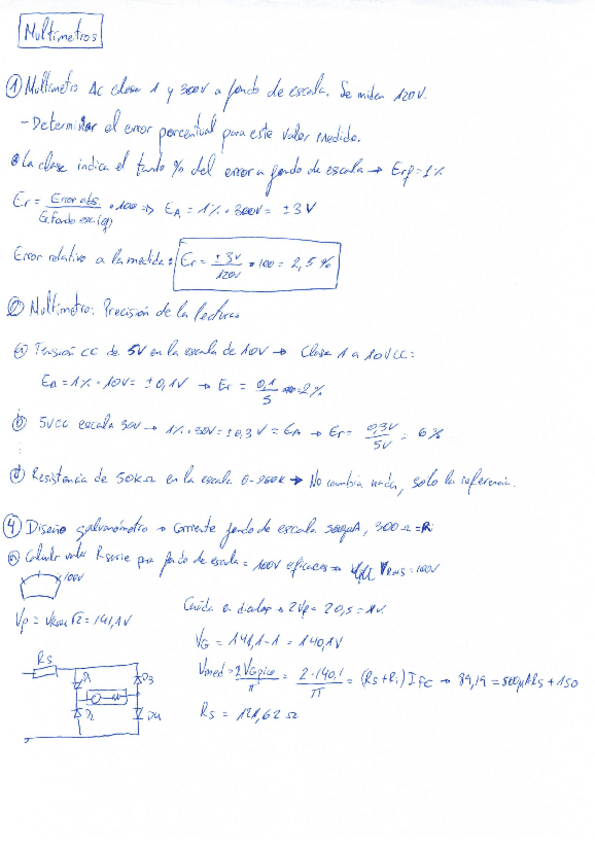 Multímetros
① Multímetro AC clase 1 y 300V a fondo de escala. Se miden 120V.
- Determinar el error porcentual para este valor medido.
La clase indica el tanto % del error a fondo de escala → Erf = 1%
Er = Error abs. / · 100 => EA = 1% · 300V = ±3V
Error relativo a la medida: Er = ±3V / 120V · 100 = 2,5%
② Multímetro: Precisión de la lectura
a) Tensión CC de 5V en la escala de 10V → Clase 1 a 10VCC:
EA = 1% · 10V = ±0,1V → Er = 0,1 / 5 = 2%
b) 5VCC escala 30V → 1% · 30V = ±0,3V = EA → Er = 0,3V / 5V = 6%
Resistencia de 50KΩ en la escala → No cambia nada, solo la referencia.
④ Diseño galvanómetro → corriente fondo de escala 500μA, 300Ω = R
a) Calcular valor Rserie para fondo de escala = 100V eficaces → VRMS = 100V
100V
Caída en diodos → 2Vp = 2·0,5 = 1V
Vp = √2 = 141,1V
VG = 141,1 - 1 = 140,1V
Vmed = 2VGpico / π = 2·140,1 / π = (Rs + Ri) IFC → 89,19 = 500μA Rs + 150
Rs = Ω
Rs
D1
D3
D2
D4